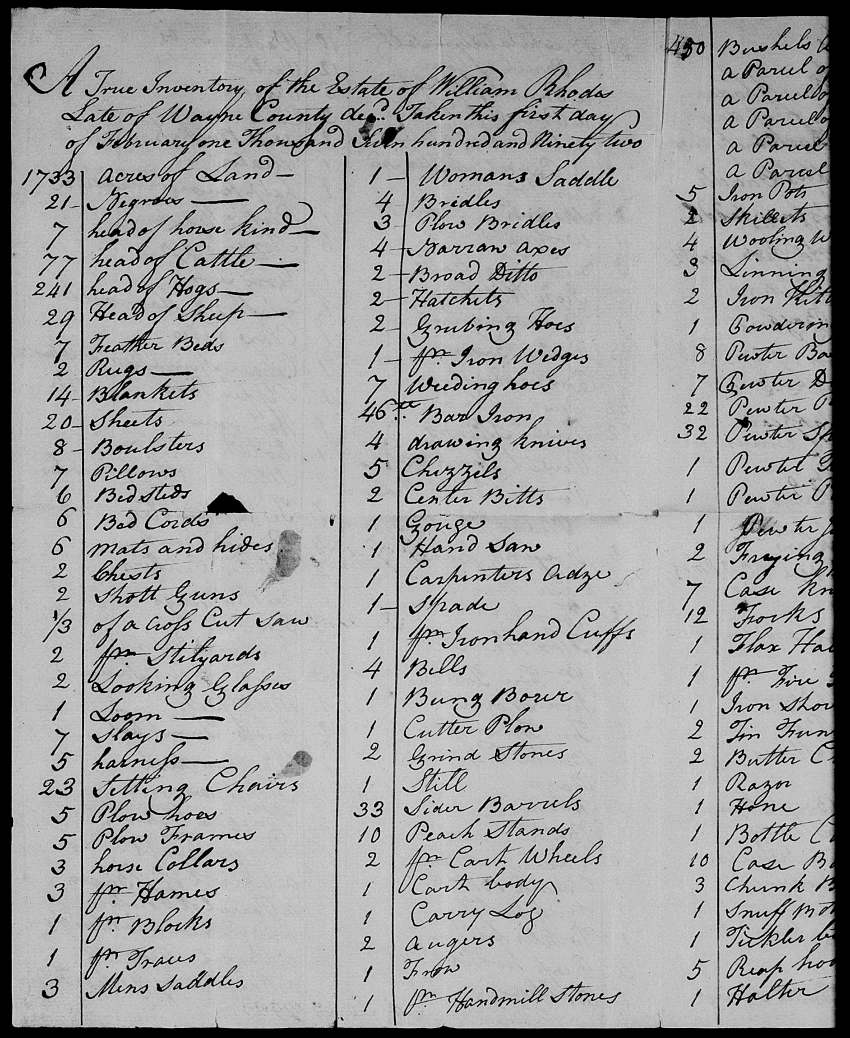 A True Inventory of the Estate of William Rhodes
Late of Wayne County decd. Taken this first day
of February one Thousand Seven hundred and Ninety two
1733 acres of Land
21 Negroes
7 head of horse kind
77 head of Cattle
241 head of Hogs
29 Head of Sheep
7 Feather Beds
2 Rugs
14 Blankets
20 Sheets
8 Boulsters
7 Pillows
6 Bedsteds
6 Bad Cords
6 Mats and hides
2 Chests
2 Shott Guns
1/3 of a cross Cut Saw
2 pr Stilyards
2 Looking Glasses
1 Loom
7 Slays
5 harness
23 Setting Chairs
5 Plow hoes
5 Plow Frames
3 horse Collars
3 pr Hames
1 pr Blocks
1 pr Traces
3 Mens Saddles
1 Womans Saddle
4 Bridles
3 Plow Bridles
4 Narran Axes
2 Broad Ditto
2 Hatchets
2 Grubing Hoes
1 pr Iron Wedges
7 Weeding hoes
46 Bar Iron
4 drawing knives
5 Chezzils
2 Center Bitts
1 Gouge
1 Hand Saw
1 Carpenters Adze
1 Spade
1 pr Iron hand Cuffs
4 Bells
1 Bung Borer
1 Cutter Plow
2 Grind Stones
1 Still
33 Sider Barrels
10 Peach Stands
2 pr Cart Wheels
1 Cart body
1 Carry Log
2 augers
1 Frow
1 pr Handmill Stones
450 Bushels
a Parcel of
a Parcel of
a Parcel of
a Parcel
a Parcel
5 Iron Pots
2 Skillets
4 Wooling W
3 Linning
2 Iron Kitt
1 
8 Pewter Ba
7 Pewter D
22 Pewter P
32 Pewter Sp
1 Pewter
1 Pewter P
1 Pewter
2 Frying
7 Case kn
12 Forks
1 Flax Ha
1 pr Fire
1 Iron Shov
2 Tin Funn
2 Butter
1 Razor
1 Hone
1 Bottle C
10 Case Bo
3 Chunk B
1 Snuff Bot
1 Tickler bo
5 Reap hoo
1 Halter